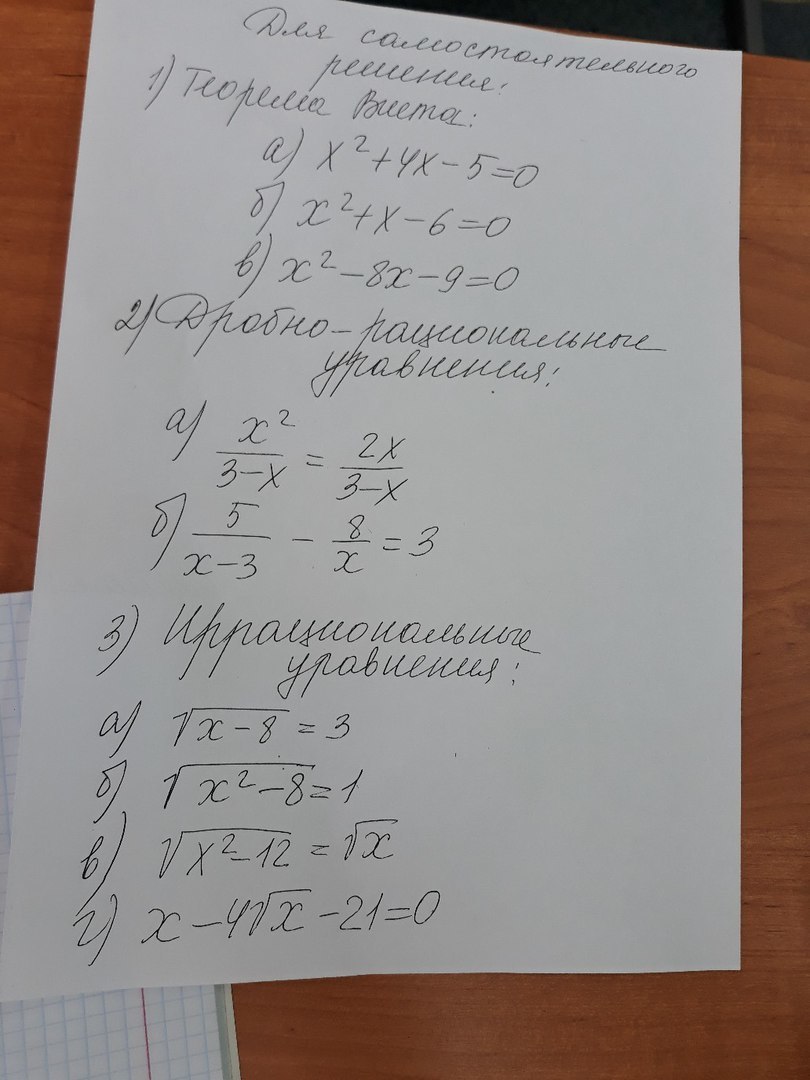 Для самостоятельного
решения:
1) Теорема Виета:
а) x²+4x-5=0
б) x²+x-6=0
в) x²-8x-9=0
2) Дробно-рациональные
уравнения:
а) x²/(3-x) = 2x/(3-x)
б) 5/(x-3) - 8/x = 3
3) Иррациональные
уравнения:
а) √(x-8) = 3
б) √(x²-8) = 1
в) √(x²-12) = √x
г) x-4√x-21=0